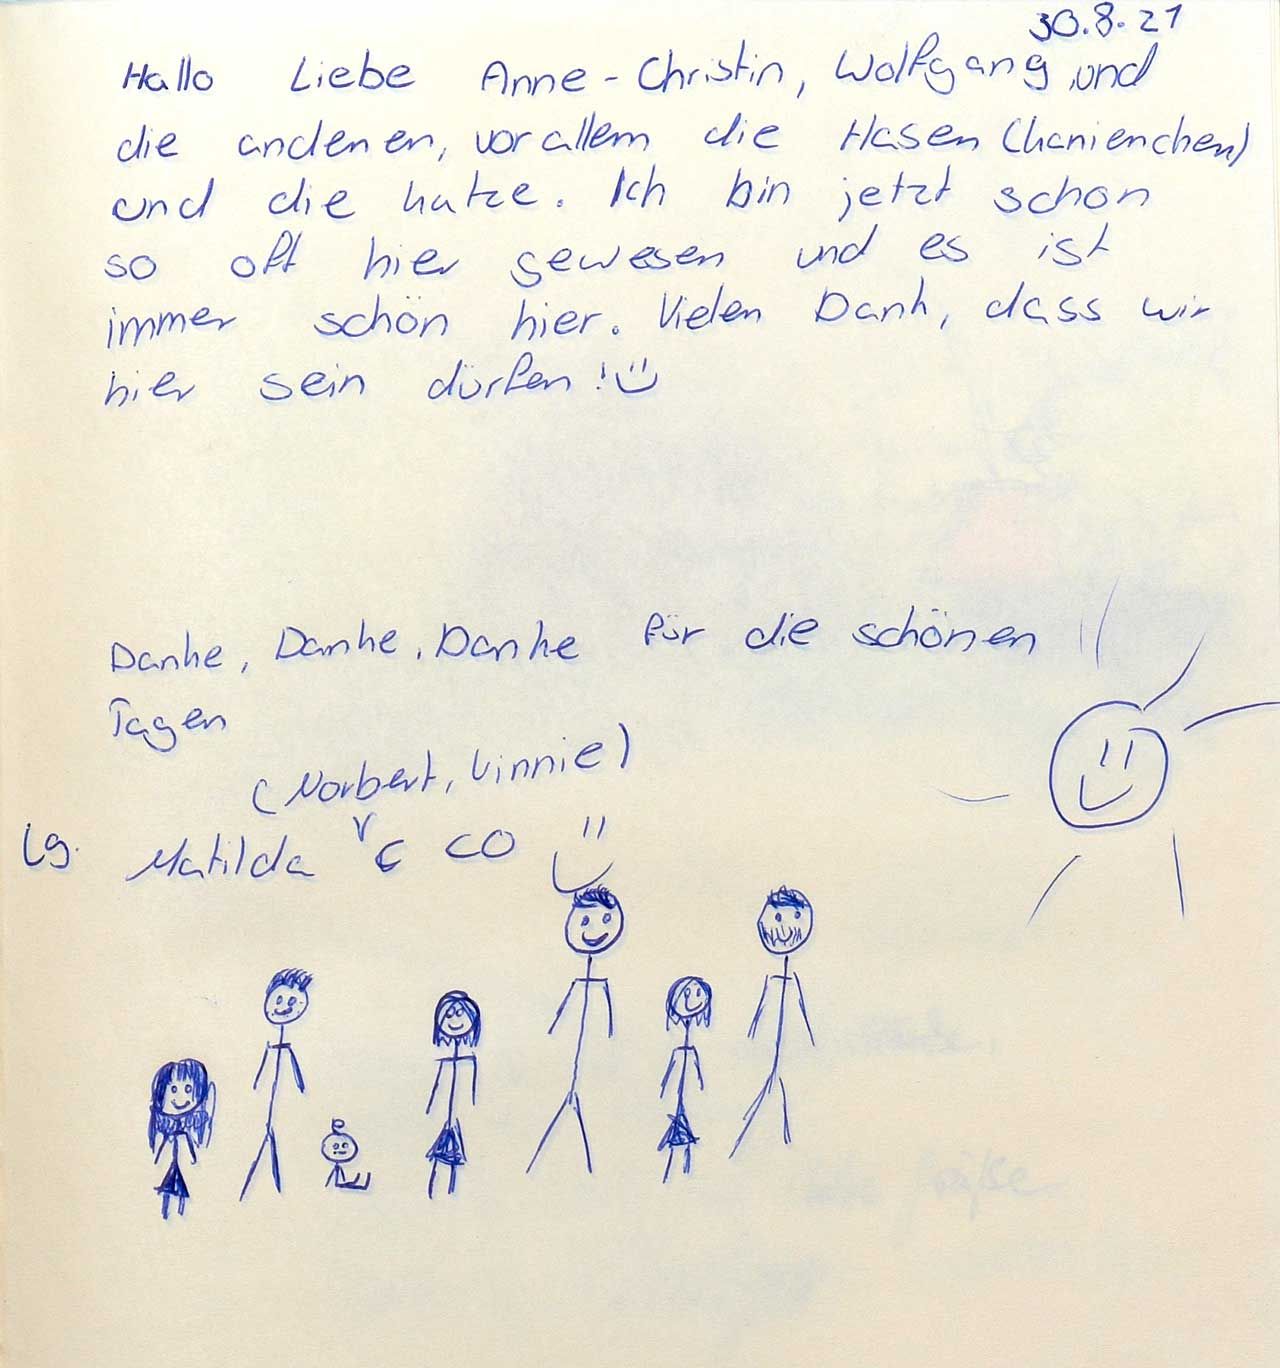 30.8.21
Hallo Liebe Anne-Christin, Wolfgang und
die anderen, vor allem die Hasen (Kanienchen)
und die Katze. Ich bin jetzt schon
so oft hier gewesen und es ist
immer schön hier. Vielen Dank, dass wir
hier sein dürfen!
Danke, Danke, Danke für die schönen
Tagen
(Norbert, Vinnie)
Lg. Matilda & CO